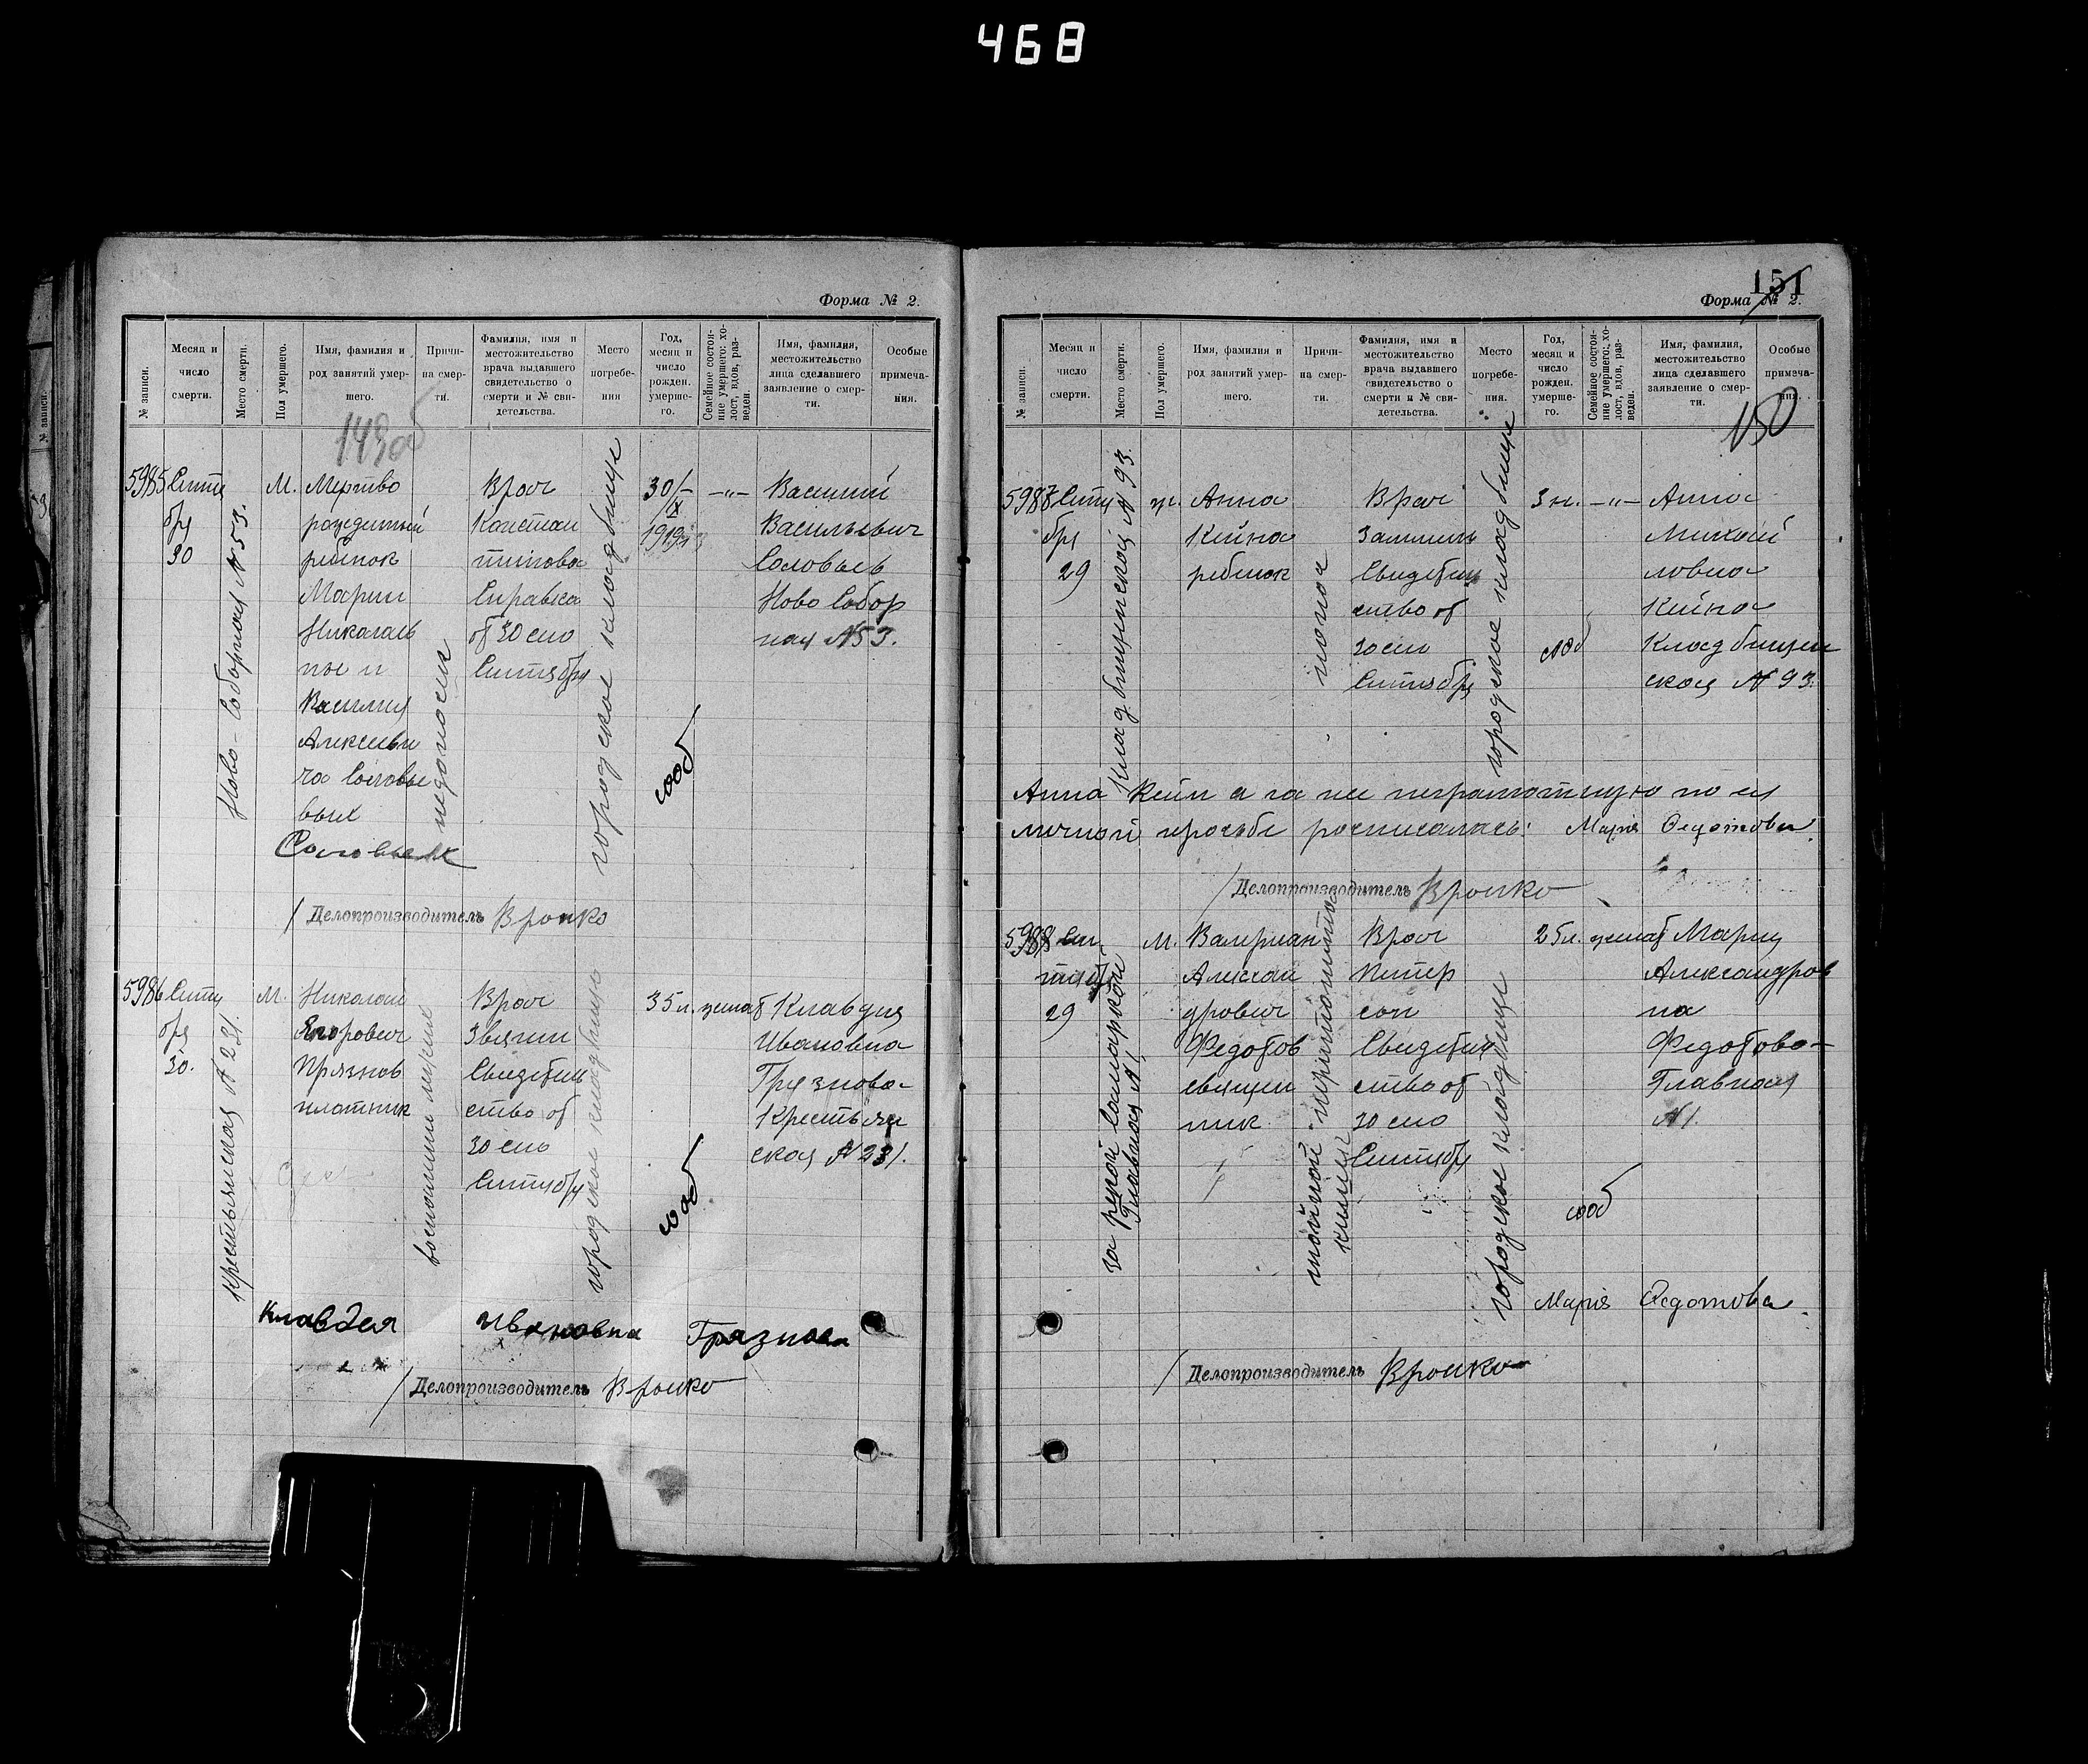 468
Форма № 2.
№ записи.
Месяц и
число
смерти.
Место смерти.
Пол умершего.
Имя, фамилия и
род занятий умер-
шего.
Причи-
на смер-
ти.
Фамилия, имя и
местожительство
врача выдавшего
свидетельство о
смерти и № сви-
детельства.
Место
погребе-
ния
Год,
месяц и
число
рожден.
умерше-
го.
Семейное состоя-
ние умершего: хо-
лост, вдов, раз-
веден.
Имя, фамилия,
местожительство
лица сделавшего
заявление о смер-
ти.
Особые
примеча-
ния.
149об
5985 Сентя
бря
30
Ново-Соборная № 53.
М.
Мертво
рожденный
ребенок
Марии
Николаев
ны и
Василия
Алексеви
ча Соловье
вых
недоносик
Врач
Констан
тинова
Справка
от 30 сего
Сентября
городское кладбище
30/IX
1919
—"—
Василий
Васильевич
Соловьев
Ново Собор
ная № 53.
сооб
Соловьев
Делопроизводитель Вронко
5986 Сентя
бря
30.
Крестьянская № 231.
М.
Николай
Егорович
Грязнов
плотник
воспаление легких
Врач
Звягин
Свидетель
ство от
30 сего
Сентября
городское кладбище
35 л.
женат
Клавдия
Ивановна
Грязнова
Крестьян
ская № 231.
сооб
Клавдея Ивановна Грязнова
Делопроизводитель Вронко
151
Форма № 2.
№ записи.
Месяц и
число
смерти.
Место смерти.
Пол умершего.
Имя, фамилия и
род занятий умер-
шего.
Причи-
на смер-
ти.
Фамилия, имя и
местожительство
врача выдавшего
свидетельство о
смерти и № сви-
детельства.
Место
погребе-
ния.
Год,
месяц и
число
рожден.
умерше-
го.
Семейное состоя-
ние умершего: хо-
лост, вдов, раз-
веден.
Имя, фамилия,
местожительство
лица сделавшего
заявление о смер-
ти.
Особые
примеча-
ния.
150
5987 Сентя
бря
29
Кладбищенская № 93.
ж.
Анна
Кейна
ребенок
понос
Врач
Свидетель
ство от
30 сего
Сентября
городское кладбище
3 н.
—"—
Анна
Михай
ловна
Кейна
Кладбищен
ская № 93.
Анна Кейн а за нее неграмотную по ея
личной просьбе росписалась: Мария Федотова.
Делопроизводитель Вронко
5988 Сен
тяб
29
за рекой Самаркой
Главная № 1,
М.
Валериан
Алексан
дрович
Федотов
священ
ник
Врач
Петер
сон
Свидетель
ство от
30 сего
Сентября
городское кладбище
25 л.
женат
Мария
Александров
на
Федотова
Главная
№ 1.
сооб
Мария Федотова.
Делопроизводитель Вронко